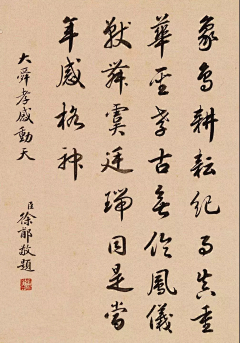 象鳥耕耘紀事真重
華至孝古無倫鳳儀
獸舞虞廷瑞因是當
年感格神
大舜孝感動天
臣徐郙敬題